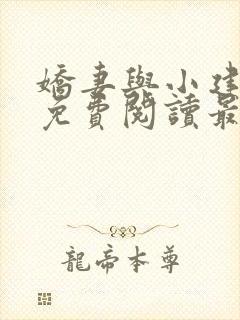 嬌妻與小建
免費閱讀最
龍帝本尊